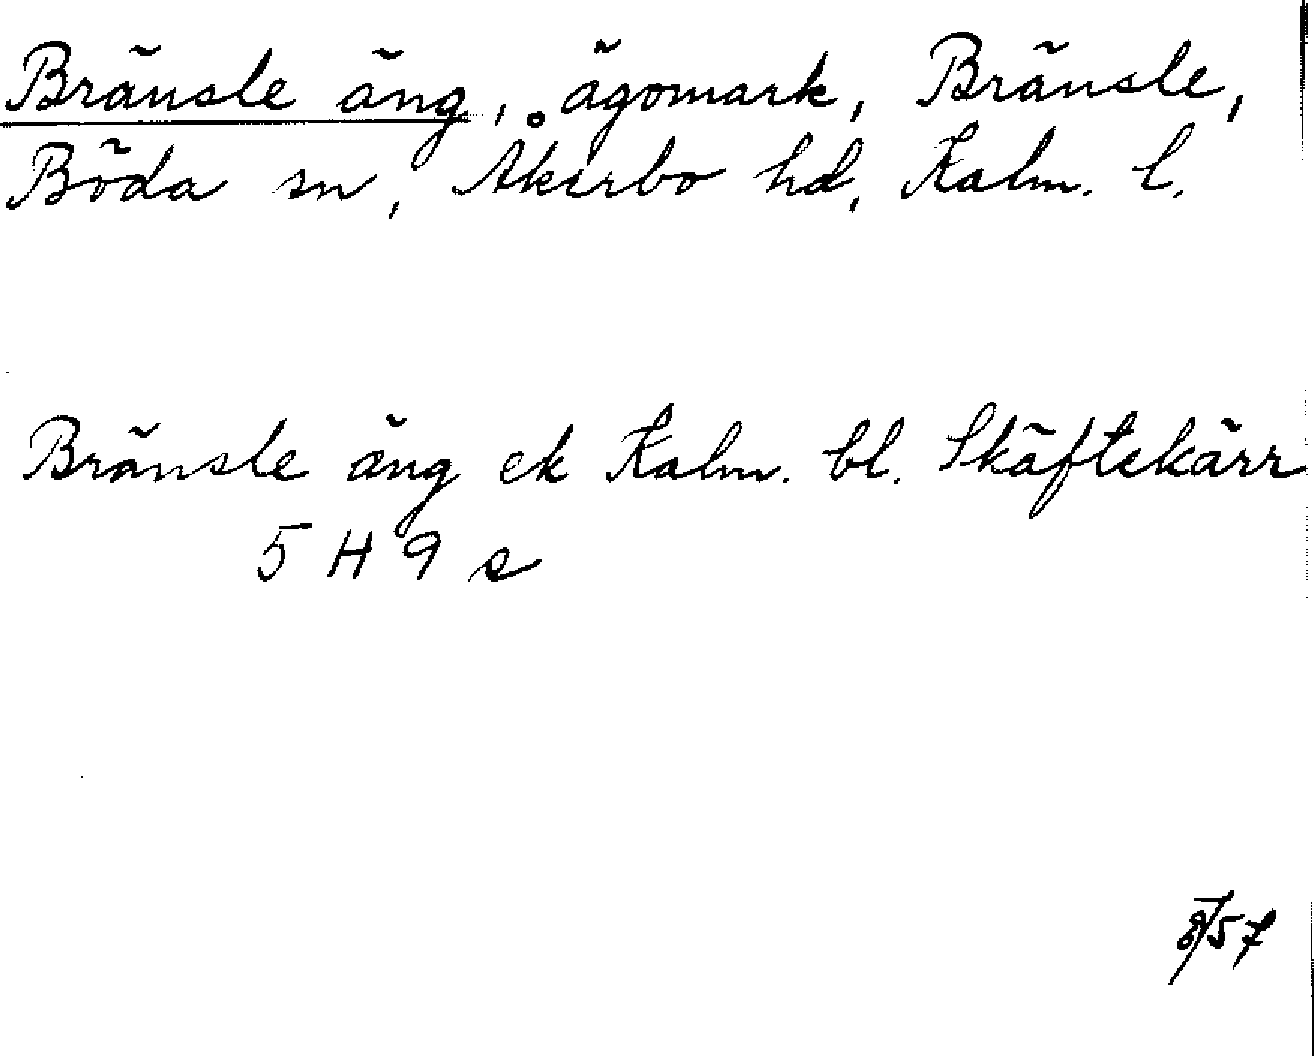 Bränsle äng, ägomark, Bränsle,
Böda sn, Åkerbo hd, Kalm. l.
Bränsle äng ek Kalm. bl. Skäftekärr
5 H 9 e
8/57